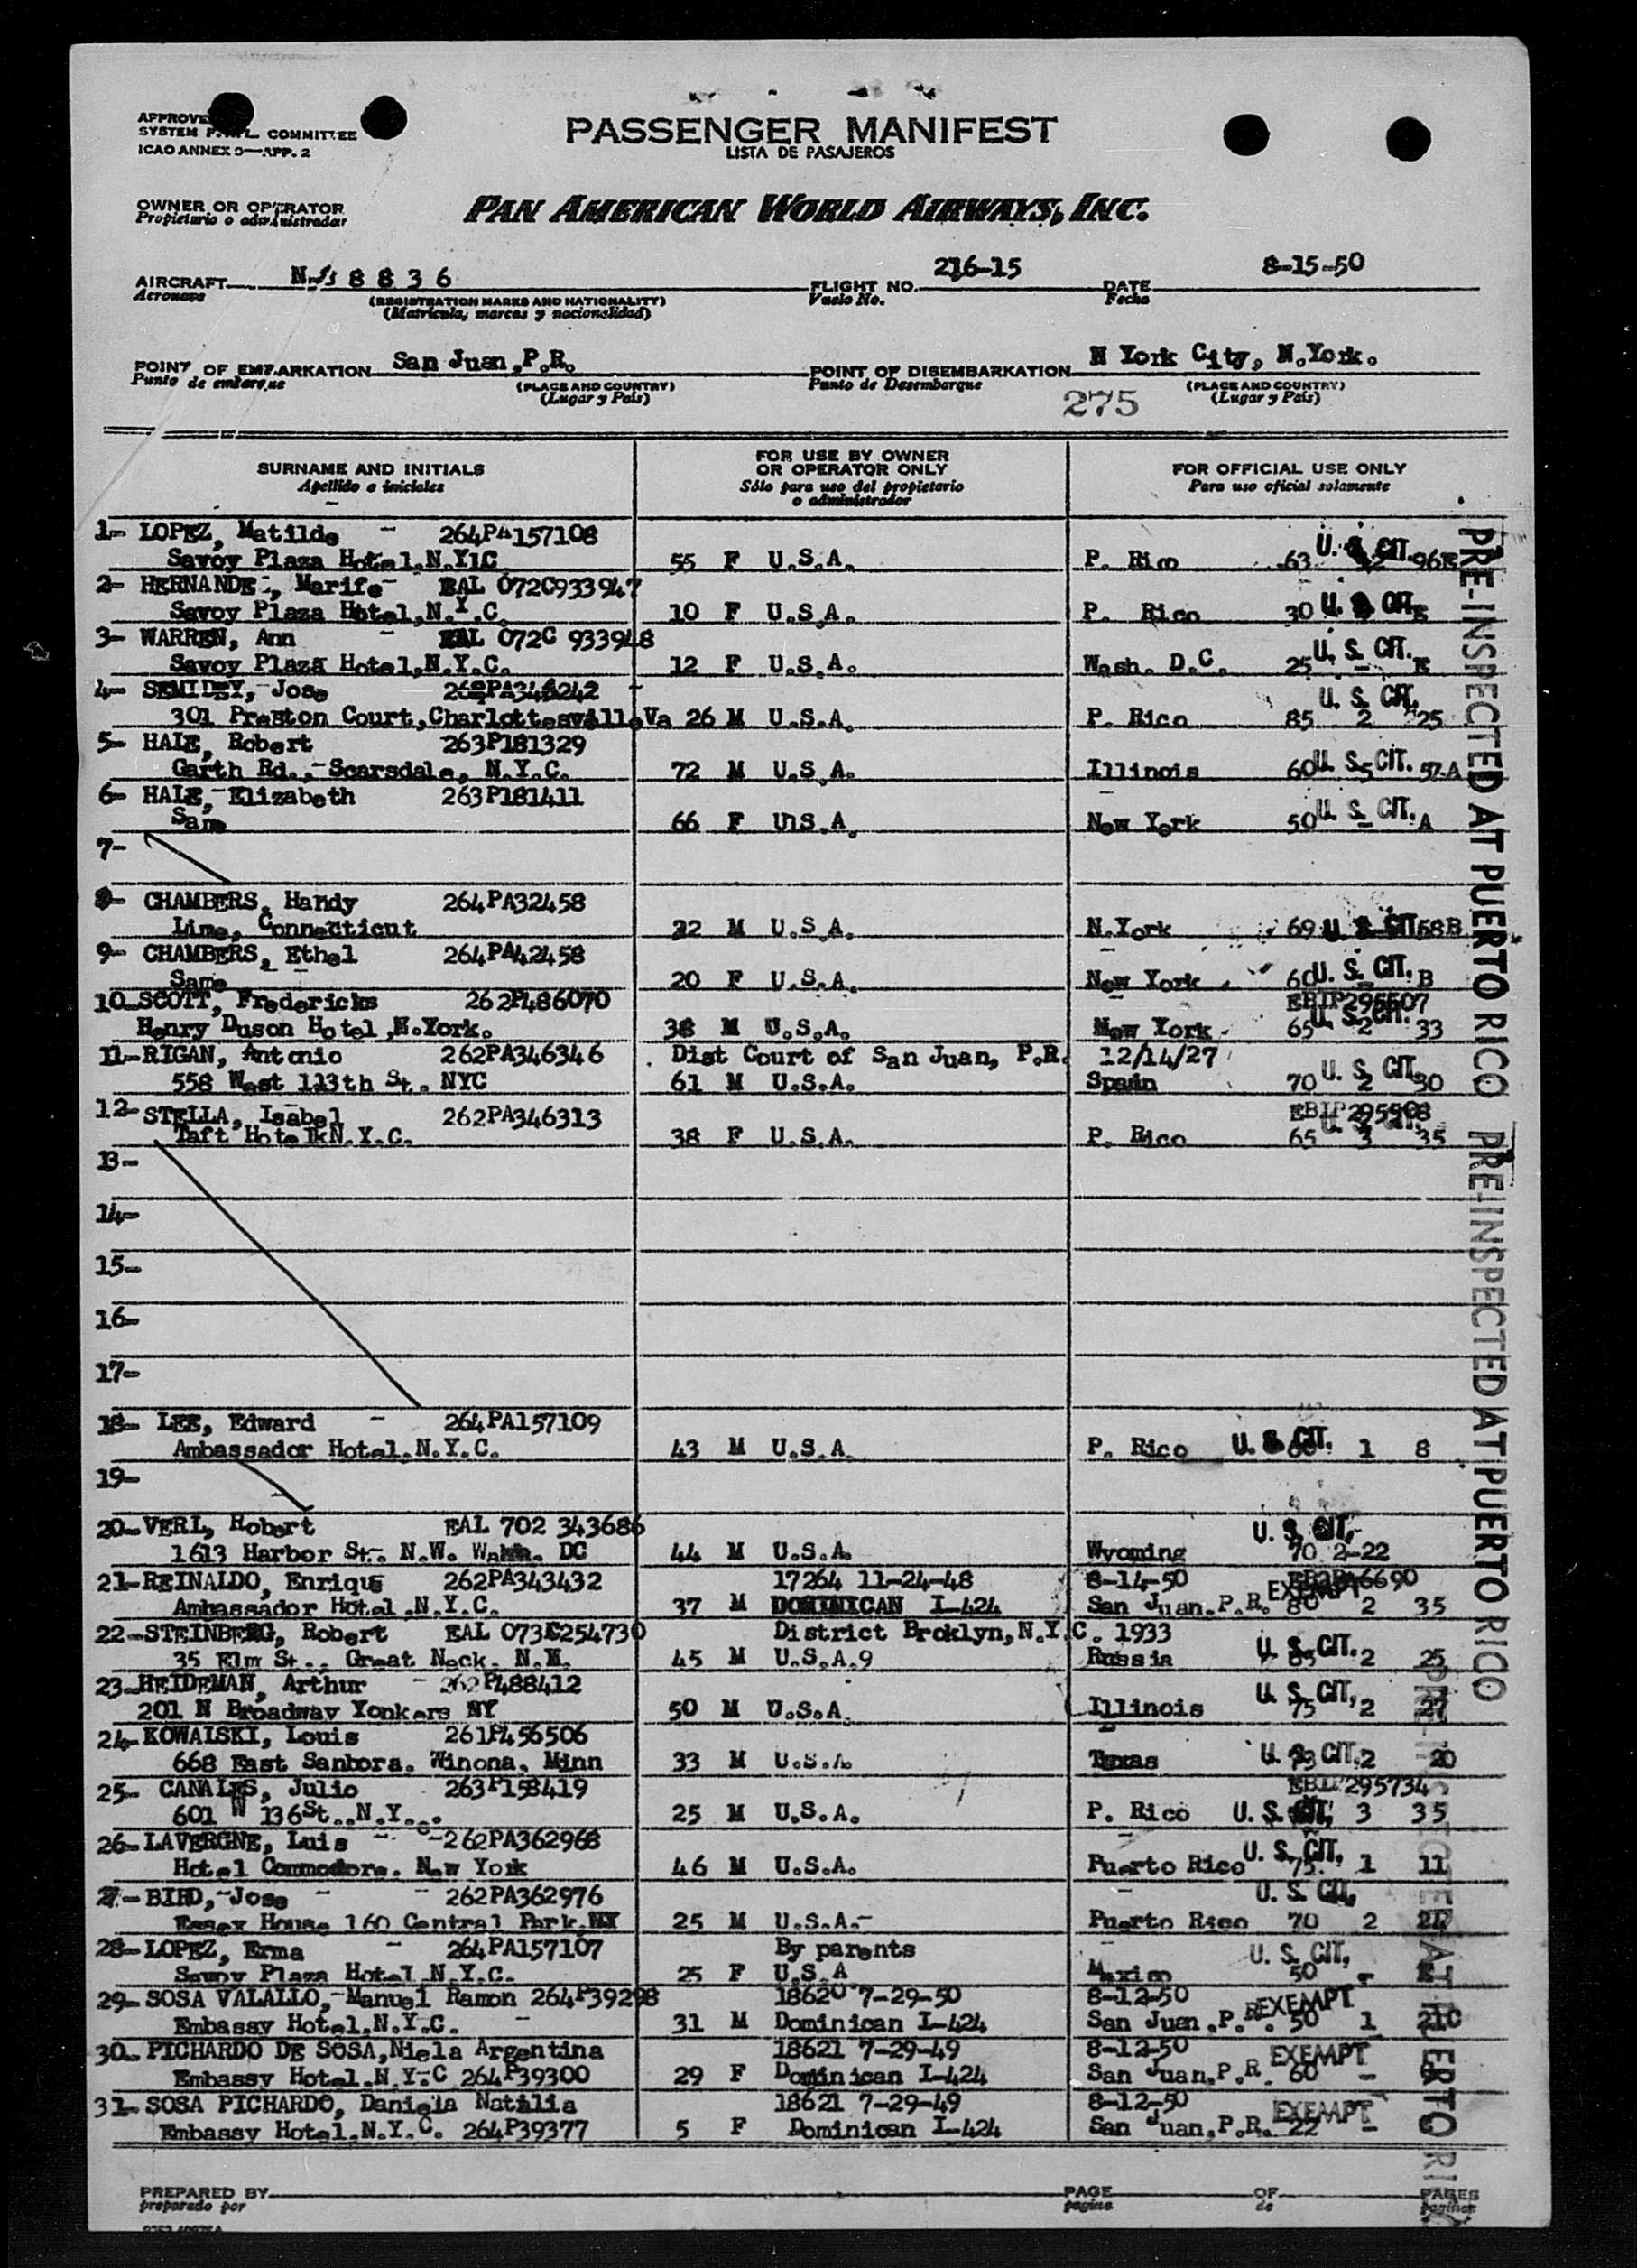 APPROVE
SYSTEM COMMITTEE
ICAO ANNEX 9—APP. 2
PASSENGER MANIFEST
LISTA DE PASAJEROS
OWNER OR OPERATOR
Propietario o administrador
PAN AMERICAN WORLD AIRWAYS, INC.
AIRCRAFT 8 8 3 6
Aeronave
(REGISTRATION MARKS AND NATIONALITY)
(Matricula, marcas y nacionalidad)
FLIGHT NO. 216-15
Vuelo No.
DATE 8-15-50
Fecha
POINT OF EMBARKATION San Juan, P.R.
Punto de embarque
(PLACE AND COUNTRY)
(Lugar y País)
POINT OF DISEMBARKATION N York City, N.York.
Punto de Desembarque
(PLACE AND COUNTRY)
(Lugar y País)
275
SURNAME AND INITIALS
Apellido e iniciales
FOR USE BY OWNER
OR OPERATOR ONLY
Sólo para uso del propietario
o administrador
FOR OFFICIAL USE ONLY
Para uso oficial solamente
1- LOPEZ, Matilde - 264PA157108
Savoy Plaza Hotel,N.Y1C 55 F U.S.A. P. Rico 63 U. S. CIT. 96E
2- HERNANDE , Marife- EAL 072C933947
Savoy Plaza Hotel,N.Y.C. 10 F U.S.A. P. Rico 30 U. S. CIT. E
3- WARREN, Ann - EAL 072C 933948
Savoy Plaza Hotel,N.Y.C. 12 F U.S.A. Wash. D.C. 25 U. S. CIT. E
4- SEMIDEY, Jose
301 Preston Court,Charlottesville Va 26 M U.S.A. P. Rico 85 U. S. CIT. 2 25
5- HALE, Robert 263P181329
Garth Rd., Scarsdale, N.Y.C. 72 M U.S.A. Illinois 60 U. S. CIT. 5 57-A
6- HALE, Elizabeth 263P181411
Same 66 F U1S.A. New York 50 U. S. CIT. - A
7-
8- CHAMBERS, Handy 264PA32458
Lime, Connecticut 22 M U.S.A. N.York 69 U. S. CIT 58B
9- CHAMBERS, Ethel 264PA42458
Same 20 F U.S.A. New York 60 U. S. CIT. B
10-SCOTT, Fredericks 262P486070 EBIP295507
Henry Duson Hotel,N.York. 38 M U.S.A. New York 65 U. S. CIT. 2 33
11-RIGAN, Antonio 262PA346346 Dist Court of San Juan, P.R. 12/14/27
558 West 113th St. NYC 61 M U.S.A. Spain 70 U. S. CIT. 2 30
12-STELLA, Isabel 262PA346313 EBIP295508
Taft Hotel N.Y.C. 38 F U.S.A. P. Rico 65 3 35
13-
14-
15-
16-
17-
18- LEE, Edward - 264PA157109
Ambassador Hotel.N.Y.C. 43 M U.S.A. P. Rico U. S. CIT. 1 8
19-
20-VERL, Robert EAL 702 343686
1613 Harbor St. N.W. Wash. DC 44 M U.S.A. Wyoming U. S. CIT. 70 2-22
21-REINALDO, Enrique 262PA343432 17264 11-24-48 8-14-50
Ambassador Hotel,N.Y.C. 37 M DOMINICAN I-424 San Juan.P.R. EXEMPT 80 2 35
22-STEINBERG, Robert EAL 073C254730 District Broklyn,N.Y.C. 1933
35 Elm St., Great Neck. N.Y. 45 M U.S.A.9 Russia U. S. CIT. 85 2 25
23-HEIDEMAN, Arthur - 262P488412
201 N Broadway Yonkers NY 50 M U.S.A. Illinois U. S. CIT. 75 2 27
24-KOWALSKI, Louis 261P456506
668 East Sanbora. Winona, Minn 33 M U.S.A Texas U. S. CIT. 2 20
25- CANALES, Julio 263P158419 295734
601 W 136St..N.Y. 25 M U.S.A. P. Rico U. S. CIT. 3 35
26-LAVERGNE, Luis - 262PA362968
Hotel Commodore. New York 46 M U.S.A. Puerto Rico U. S. CIT. 75. 1 11
27-BIRD,-Jose - - 262PA362976
Essex House 160 Central Park.NY 25 M U.S.A.- Puerto Rico U. S. CIT. 70 2
28-LOPEZ, Erma - 264PA157107 By parents
Savoy Plaza Hotel N.Y.C. 25 F U.S.A Mexico U. S. CIT. 50 -
29-SOSA VALALLO,-Manuel Ramon 264P39298 18620 7-29-50 8-12-50
Embassy Hotel.N.Y.C. - 31 M Dominican I-424 San Juan.P.R. EXEMPT 50 1 21C
30. PICHARDO DE SOSA,Niela Argentina 18621 7-29-49 8-12-50
Embassy Hotel.N.Y.C 264P39300 29 F Dominican I-424 San Juan,P.R. EXEMPT 60 -
31-SOSA PICHARDO, Daniela Natalia 18621 7-29-49 8-12-50
Embassy Hotel.N.Y.C. 264P39377 5 F Dominican I-424 San Juan,P.R. EXEMPT 22 -
PRE-INSPECTED AT PUERTO RICO
PRE-INSPECTED AT PUERTO RICO
PREPARED BY
preparado por
PAGE
pagina
OF
de
PAGES
paginas